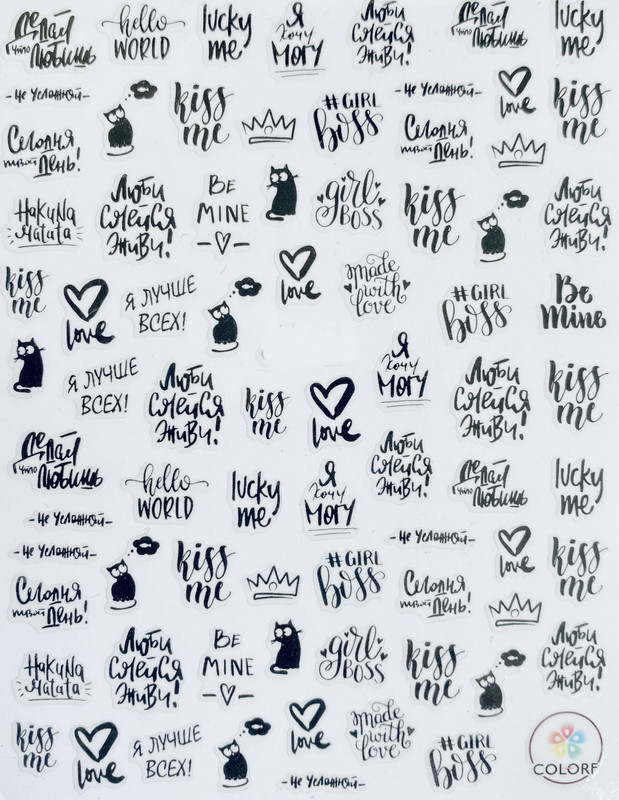 Делай
что
Любишь
hello
WORLD
lucky
me
Я
хочу
МОГУ
Люби
Смейся
Живи!
Делай
что
Любишь
lucky
me
-Не Усложняй-
kiss
me
#GIRL
Boss
-Не Усложняй-
love
kiss
me
Сегодня
твой День!
Сегодня
твой День!
HaKuNa
Matata
Люби
Смейся
Живи!
BE
MINE
girl
BOSS
kiss
me
Люби
Смейся
Живи!
kiss
me
love
Я ЛУЧШЕ
ВСЕХ!
love
made
with
love
#GIRL
Boss
Be
Mine
Я ЛУЧШЕ
ВСЕХ!
Люби
Смейся
Живи!
kiss
me
love
Я
хочу
МОГУ
Люби
Смейся
Живи!
kiss
me
Делай
что
Любишь
hello
WORLD
lucky
me
Я
хочу
МОГУ
Люби
Смейся
Живи!
Делай
что
Любишь
lucky
me
-Не Усложняй-
-Не Усложняй-
-Не Усложняй-
kiss
me
#GIRL
Boss
love
kiss
me
Сегодня
твой День!
Сегодня
твой День!
HaKuNa
Matata
Люби
Смейся
Живи!
BE
MINE
girl
BOSS
kiss
me
Люби
Смейся
Живи!
kiss
me
love
Я ЛУЧШЕ
ВСЕХ!
love
made
with
love
#GIRL
Boss
-Не Усложняй-
COLORF